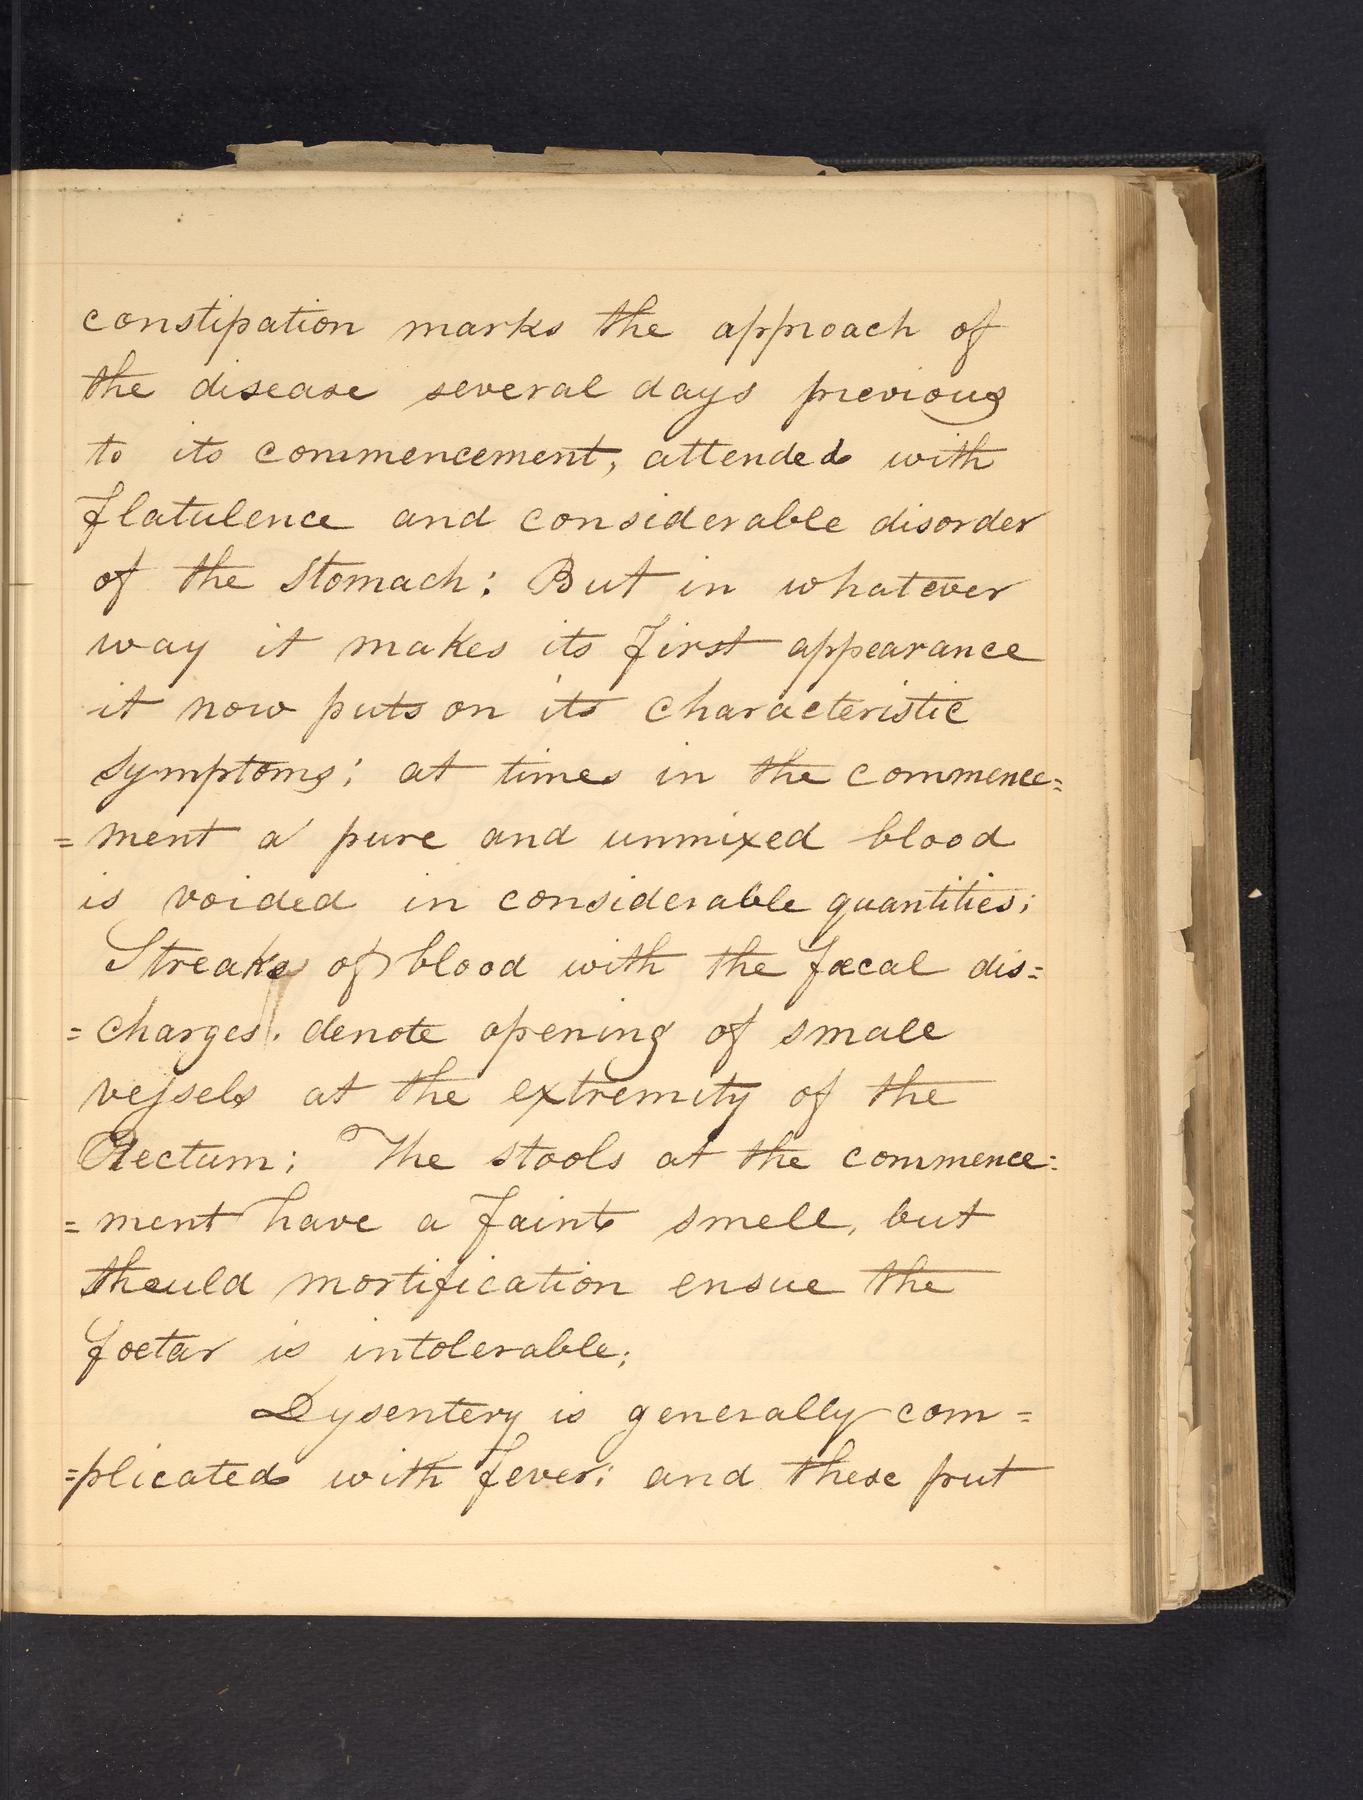 constipation marks the approach of
the disease several days previous
to its commencement, attended with
flatulence and considerable disorder
of the Stomach: But in whatever
way it makes its first appearance
it now puts on its characteristic
symptoms; at times in the commence=
=ment a pure and unmixed blood
is voided in considerable quantities;
Streaks of blood with the fæcal dis=
=charges. denote opening of small
vessels at the extremity of the
Rectum; The stools at the commence=
=ment have a faint smell, but
should mortification ensue the
foetar is intolerable;
Dysentery is generally com=
=plicated with fever; and these put